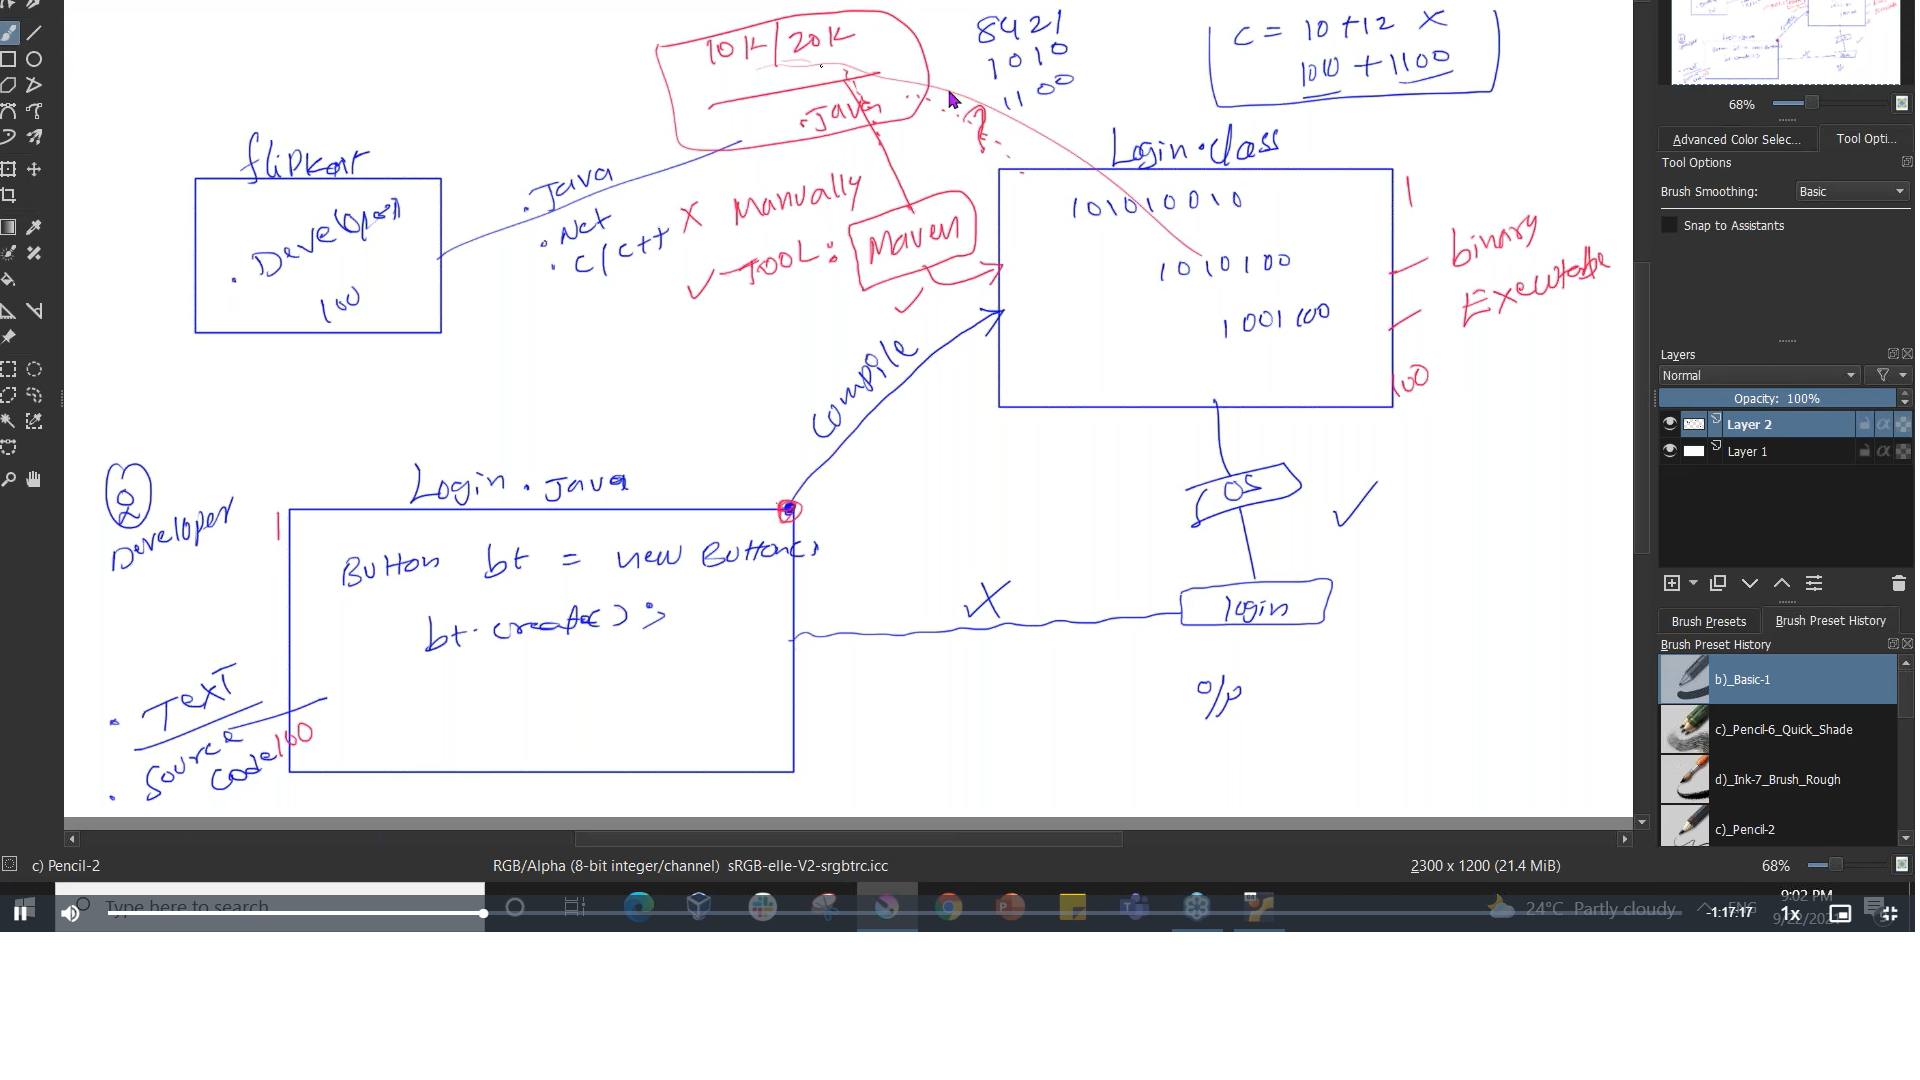 10K | 20K
.Java
8421
1010
1100
C = 10 + 12 X
1010 + 1100
flipkart
. Developer
100
.Java
.Net
. C/C++
X Manually
✓ TOOL: Maven
✓
Login.class
101010010
1010100
1001100
1
100
binary
Executable
compile
OS
✓
login
X
o/p
Developer
Login.Java
1
Button bt = new Button();
bt.create();
100
. Text
. Source
code
68%
Advanced Color Selec...
Tool Opti...
Tool Options
Brush Smoothing:
Basic
Snap to Assistants
Layers
Normal
Opacity: 100%
Layer 2
Layer 1
Brush Presets
Brush Preset History
Brush Preset History
b)_Basic-1
c)_Pencil-6_Quick_Shade
d)_Ink-7_Brush_Rough
c)_Pencil-2
c) Pencil-2
RGB/Alpha (8-bit integer/channel) sRGB-elle-V2-srgbtrc.icc
2300 x 1200 (21.4 MiB)
68%
Type here to search
24°C Partly cloudy
ENG
9:02 PM
-1:17:17
1x